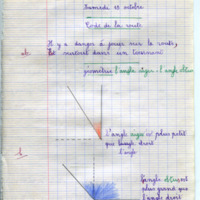 Samedi 21 octobre
Code de la route
Il y a danger à jouer sur la route,
géométrie l'angle aigu - l'angle obtus
L'angle aigu est plus petit
que l'angle droit
l'angle
L'angle obtus est
plus grand que
l'angle droit